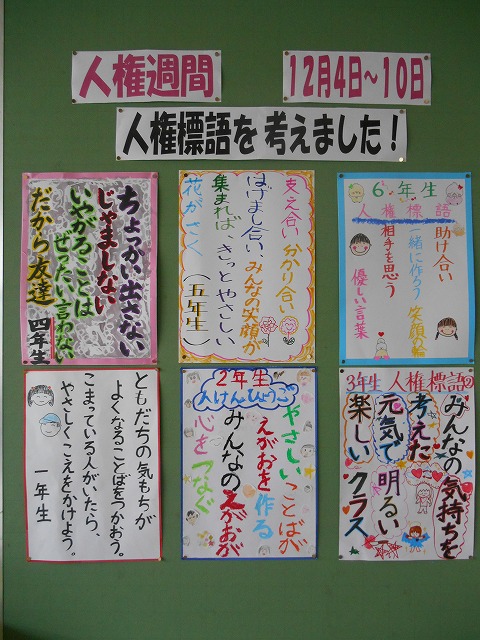 人権週間
12月4日～10日
人権標語を考えました！
ちょっかい出さない
じゃましない
いやがることは
ぜったい言わない
だから友達
四年生
支え合い 分かり合い
はげまし合い、みんなの笑顔が
集まれば、きっとやさしい
花がさく
（五年生）
6年生
人権標語
助け合い
一緒に作ろう 笑顔の輪
相手を思う
優しい言葉
ともだちの気もちが
よくなることばをつかおう。
こまっている人がいたら、
やさしくこえをかけよう。
一年生
2年生
人けんひょうご
やさしいことばが
えがおを作る
みんなのえがおが
心をつなぐ
3年生 人権標語の
みんなの気持ちを
考えた
元気で明るい
楽しいクラス